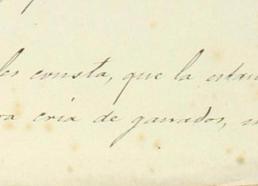 les consta, que la estan
ra cria de ganados,